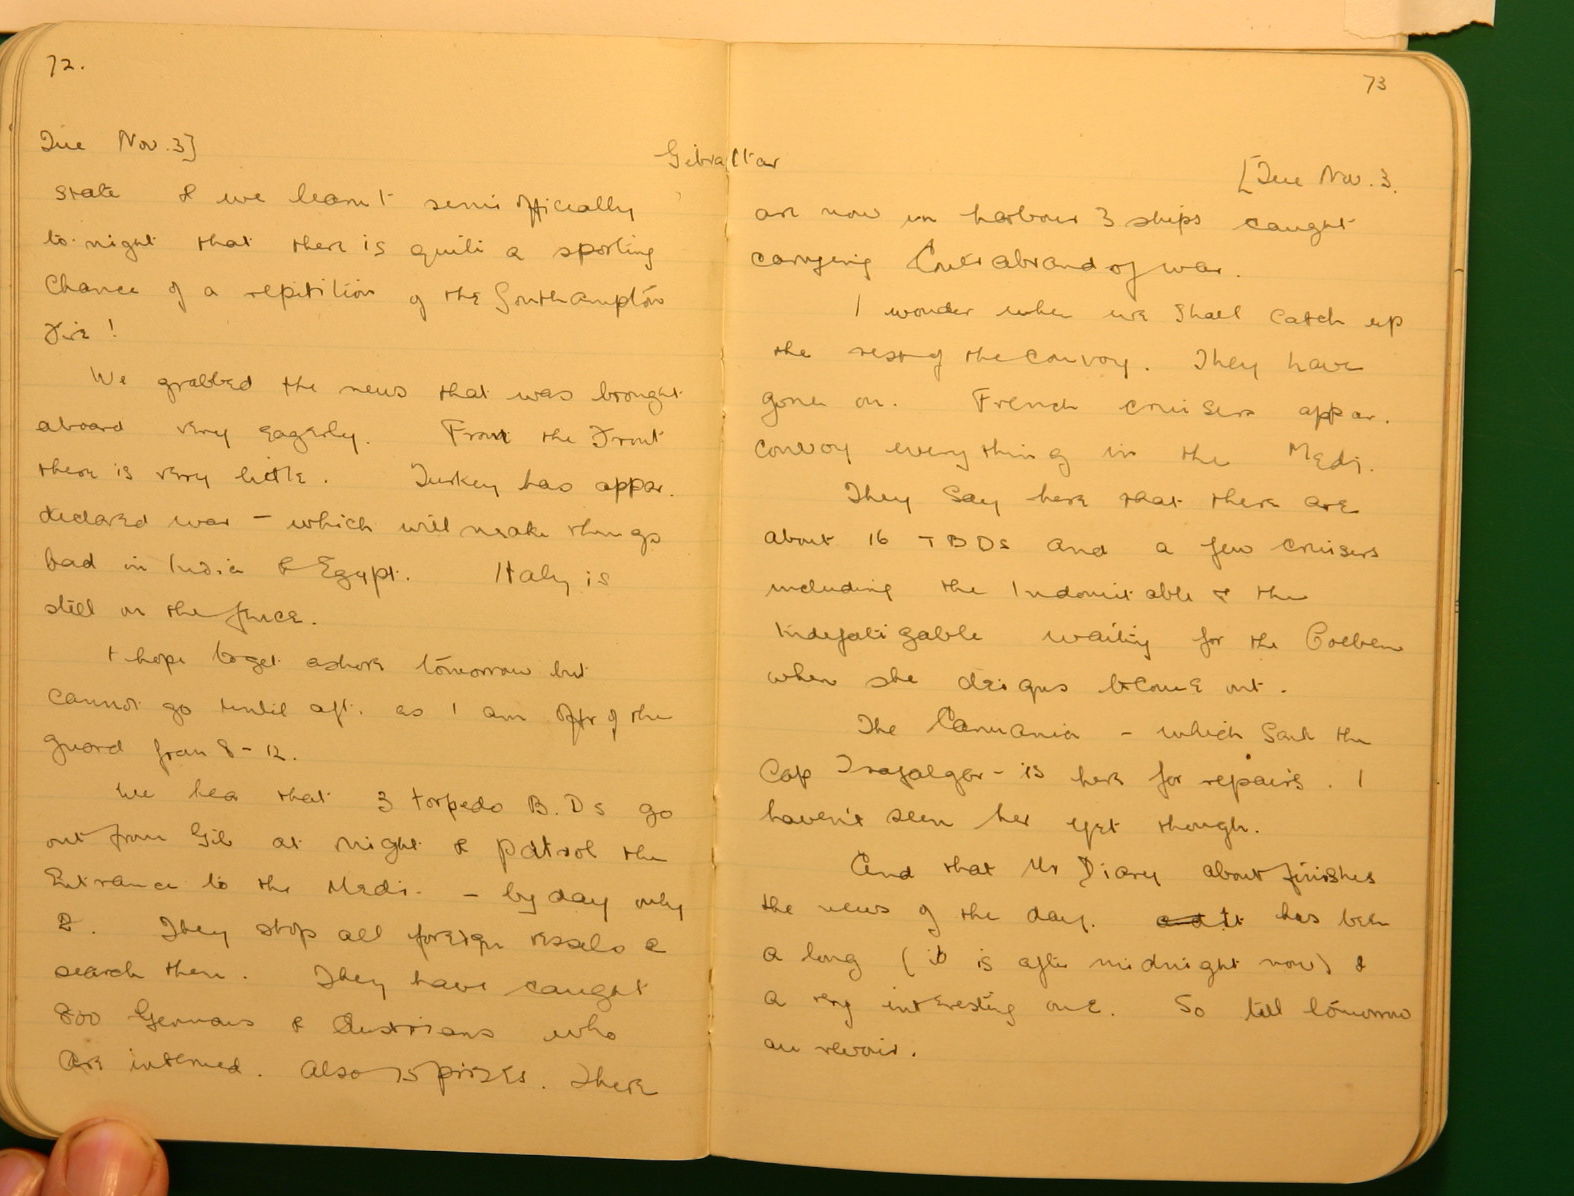 72.
Tue Nov. 3]
Gibraltar
state & we learnt semi officially
to-night that there is quite a sporting
Chance of a repetition of the Southampton
Fire!
We grabbed the news that was brought
aboard very eagerly. From the Front
there is very little. Turkey has appar.
declared war – which will make things
bad in India & Egypt. Italy is
still on the fence.
I hope to get ashore tomorrow but
cannot go until aft. as I am offr of the
guard from 8 - 12.
We hear that 3 torpedo B.Ds go
out from Gib at night & patrol the
Entrance to the Medi. – by day only
2. They stop all foreign vessels &
search them. They have caught
800 Germans & Austrians who
are interned. Also 15 prizes. There
73
[Tue Nov. 3.
are now in harbour 3 ships caught
carrying Contrabrand of war.
I wonder when we shall catch up
the rest of the convoy. They have
gone on. French cruisers appar.
convoy everything in the Medi.
They say here that there are
about 16 TBDs and a few cruisers
including the Indomitable & the
Indefatigable waiting for the Goeben
when she deigns to come out.
The Carmania – which sank the
Cap Trafalgar – is here for repairs. I
haven't seen her yet though.
And that Mr Diary about finishes
the news of the day. It has been
a long (it is after midnight now) &
a very interesting one. So till tomorrow
au revoir.